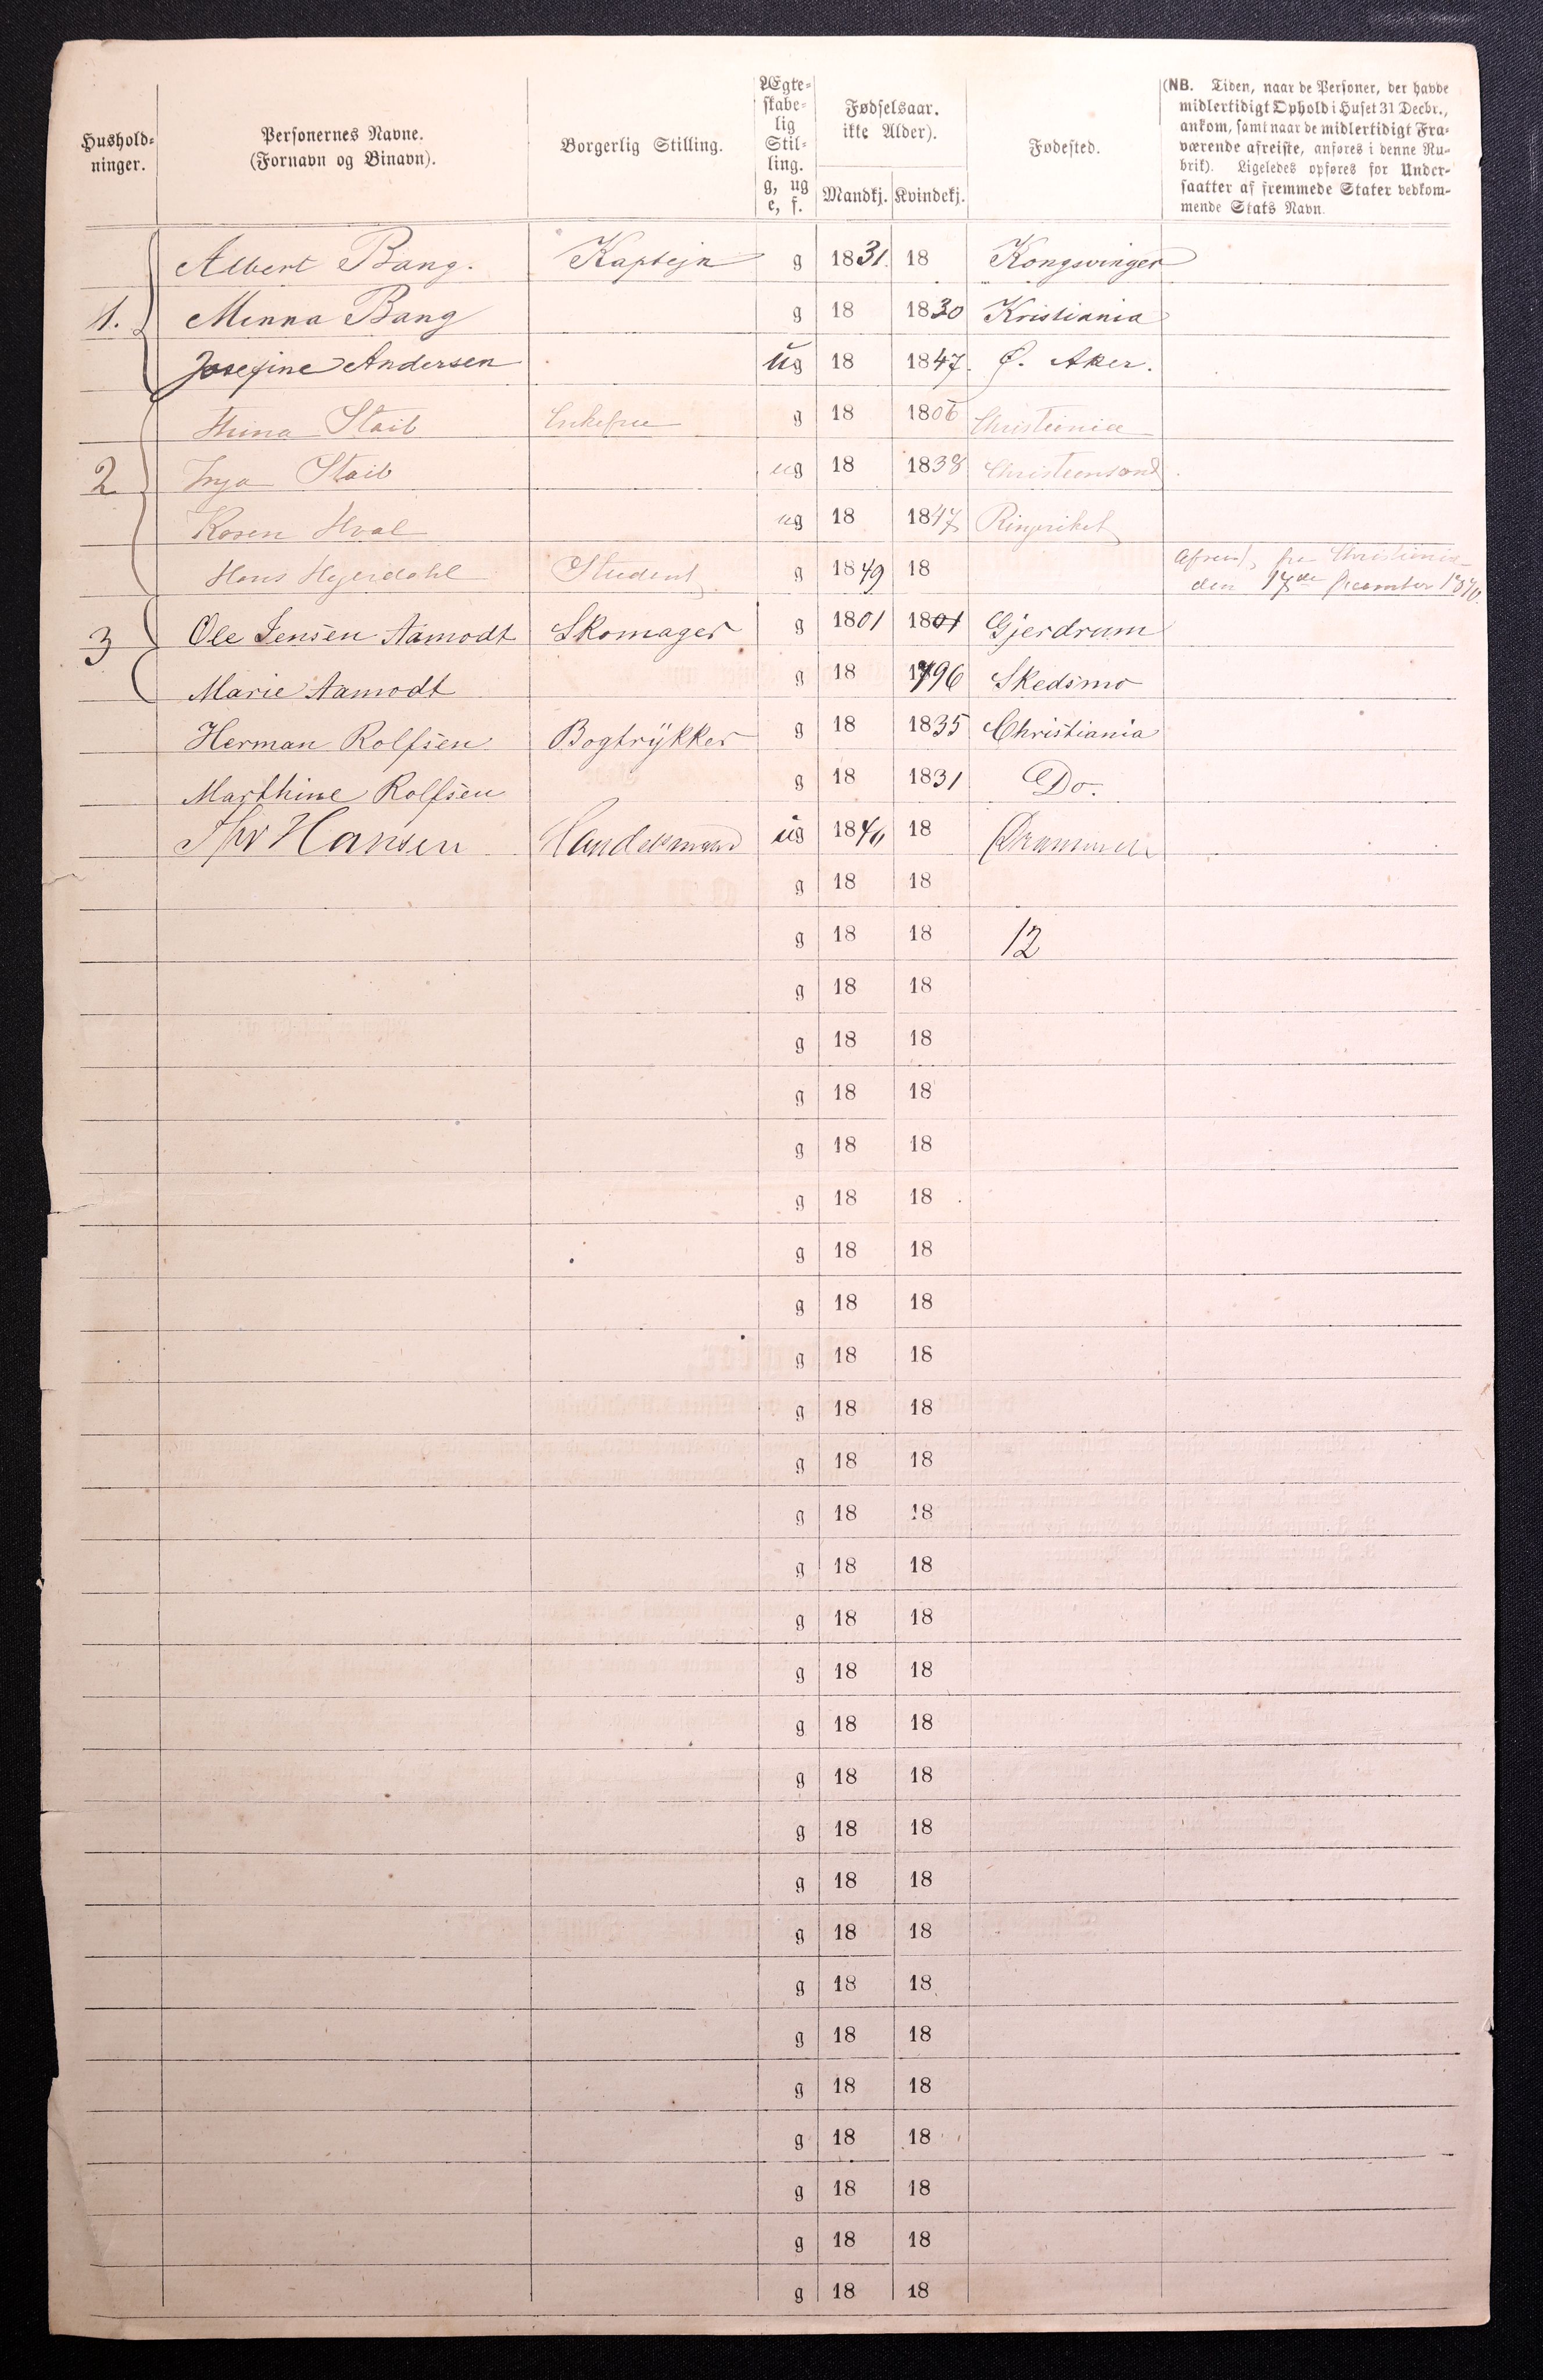 Hushold-
ninger.
Personernes Navne.
(Fornavn og Binavn).
Borgerlig Stilling.
Ægte-
skabe-
lig
Stil-
ling.
g, ug
e, f.
Fødselsaar.
ikke Alder).
Mandkj. Kvindekj.
Fødested.
(NB. Tiden, naar de Personer, der havde
midlertidigt Ophold i Huset 31 Decbr.,
ankom, samt naar de midlertidigt Fra-
værende afreiste, anføres i denne Ru-
brik). Ligeledes opføres for Under-
saatter af fremmede Stater vedkom-
mende Stats Navn.
Albert Bang. Kaptejn g 1831. 18 Kongsvinger
1. Minna Bang g 18 1830 Kristiania
Josefine Andersen ug 18 1847. Ø. Aker.
Staib Enkefrue g 18 1806 Christiania
2 Inga Staib ug 18 1838 Christiansand
Karen Hval ug 18 1847 Ringeriket
Hans Hejerdahl Student g 1849 18 fra Christiania
den 17de December 1870.
3 Ole Jensen Aamodt Skomager g 1801 1801 Gjerdrum
Marie Aamodt g 18 1796 Skedsmo
Herman Rolfsen Bogtrykker g 18 1835 Christiania
Marthine Rolfsen g 18 1831 Do.
Hansen Handelsmand ug 1840 18 Drammen
g 18 18
g 18 18 12
g 18 18
g 18 18
g 18 18
g 18 18
g 18 18
g 18 18
g 18 18
g 18 18
g 18 18
g 18 18
g 18 18
g 18 18
g 18 18
g 18 18
g 18 18
g 18 18
g 18 18
g 18 18
g 18 18
g 18 18
g 18 18
g 18 18
g 18 18
g 18 18
g 18 18
g 18 18